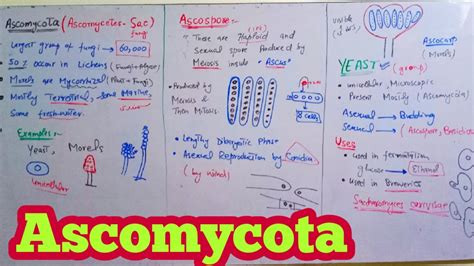 Ascomycota (Ascomycetes - Sac)
fungi
Largest group of fungi → 60,000
50% occur in Lichens (Fungi + Algae)
Morels are Mycorrhizal (Plant + Fungi)
Mostly Terrestrial, Some Marine,
Some freshwater.
Examples:-
Yeast, Morels
Unicellular
Ascospore:-
(1n)
→ These are Haploid and
Sexual spore Produced by
Meiosis inside Ascus
Produced by
Meiosis &
Then Mitosis
8 cells
Lengthy Dikaryotic Phase
Asexual Reproduction by Conidia
(by wind)
visible
Ascocarp
(Morels)
YEAST
unicellular, Microscopic
Present Mostly (Ascomycota)
Asexual → Budding
Sexual → (Ascospore, Basidios
Uses
used in fermentation
glucose → Ethanol
used in Breweries
Saccharomyces cerevisiae
Ascomycota